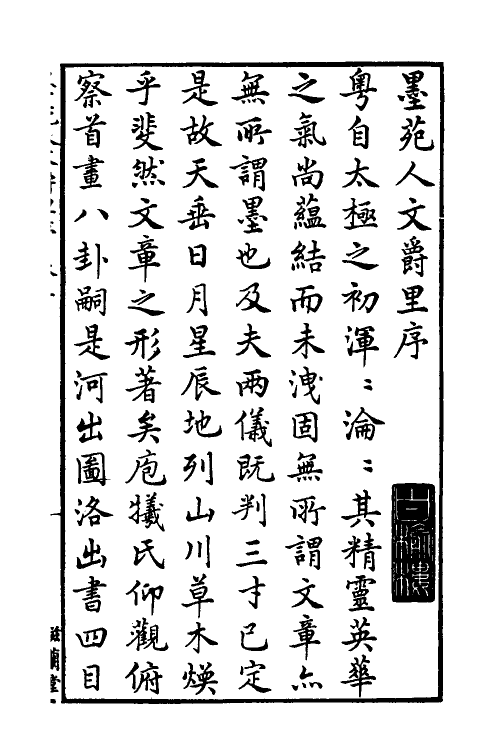 墨苑人文爵里序
粤自太極之初渾〻淪〻其精靈英華
之氣尚蘊結而未洩固無所謂文章亦
無所謂墨也及夫兩儀既判三才已定
是故天垂日月星辰地列山川草木煥
乎斐然文章之形著矣庖犧氏仰觀俯
察首畫八卦嗣是河出圖洛出書四目
滋蘭堂